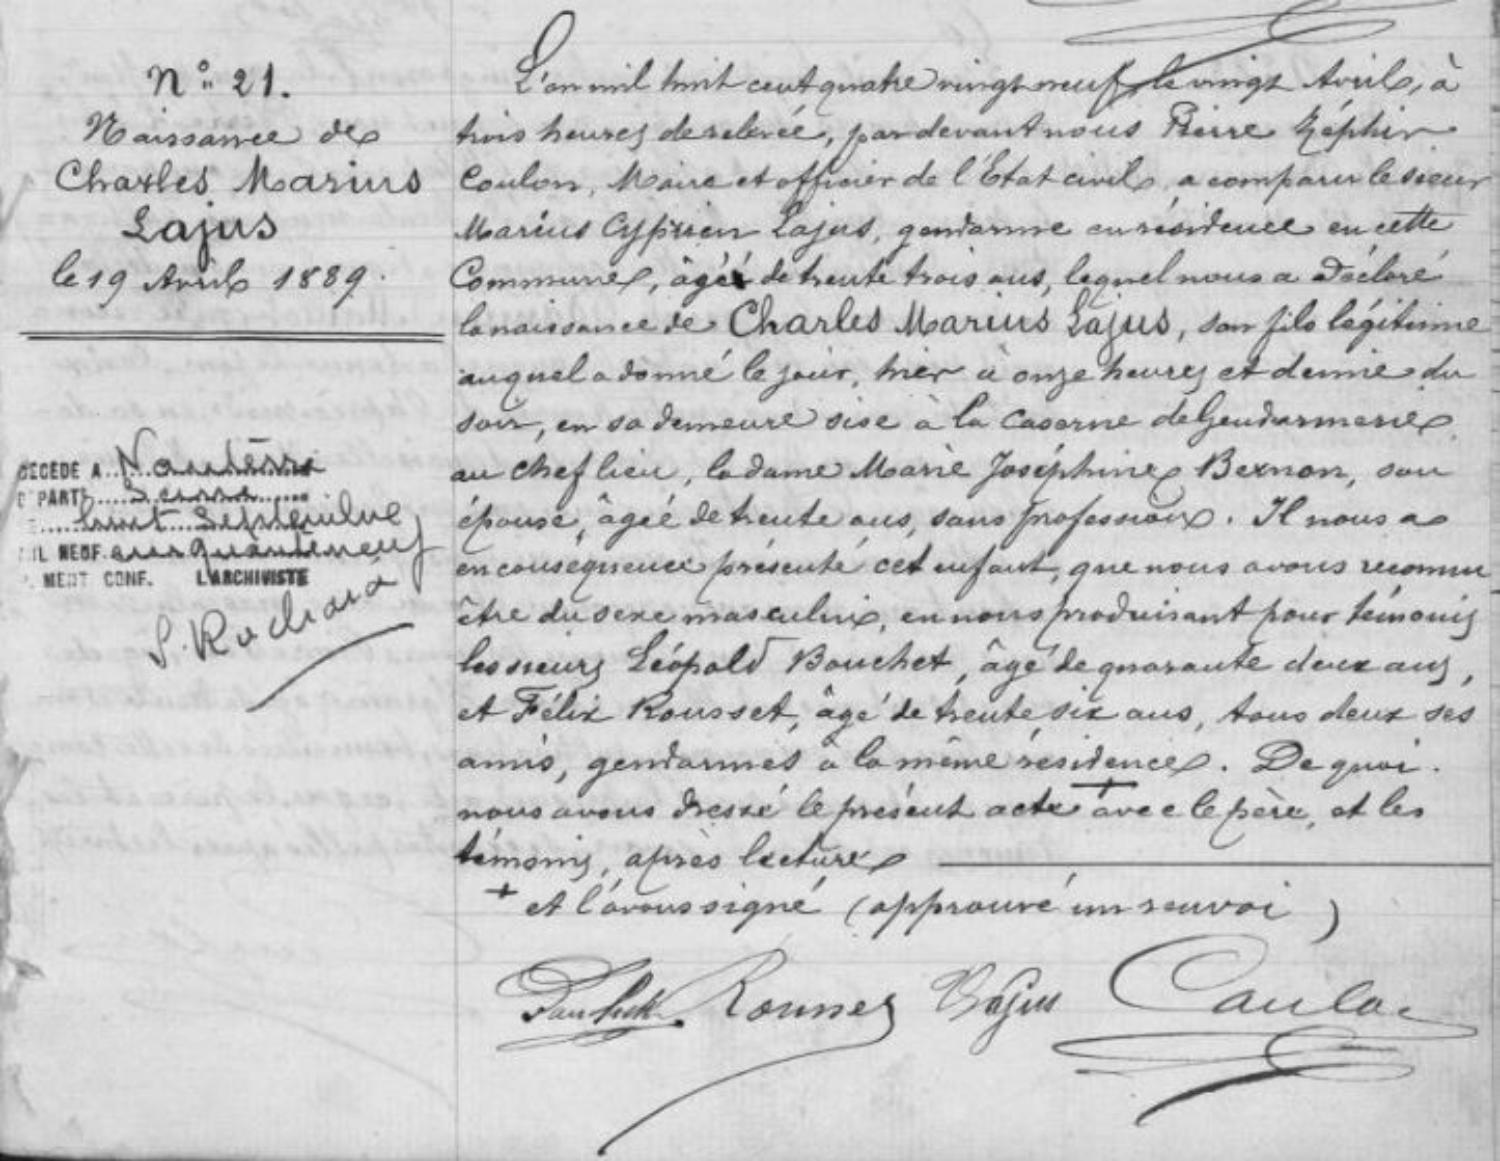 N° 21.
Naissance de
Charles Marius
Lajus
le 19 Avril 1889.
DÉCÉDÉ A Nanterre
DÉPART Seine
huit Septembre
MIL NEUF quarante neuf
MENT CONF. L'ARCHIVISTE
S. Rochard
L'an mil huit cent quatre vingt neuf, le vingt Avril, à
trois heures de relevée, par devant nous Pierre Zéphir
Coulon, Maire et officier de l'Etat civil, a comparu le sieur
Marius Cyprien Lajus, gendarme en résidence en cette
Commune, âgé de trente trois ans, lequel nous a déclaré
la naissance de Charles Marius Lajus, son fils légitime
auquel a donné le jour, hier à onze heures et demie du
soir, en sa demeure sise à la Caserne de Gendarmerie
au chef lieu, la dame Marie Joséphine Bernon, son
épouse, âgée de trente ans, sans profession. Il nous a
en conséquence présenté cet enfant, que nous avons reconnu
être du sexe masculin, en nous produisant pour témoins
les sieurs Léopold Bouchet, âgé de quarante deux ans,
et Félix Rousset, âgé de trente six ans, tous deux ses
amis, gendarmes à la même résidence. De quoi
nous avons dressé le présent acte + avec le père, et les
témoins, après lecture
+ et l'avons signé (approuvé un renvoi)
Lajus Coulon